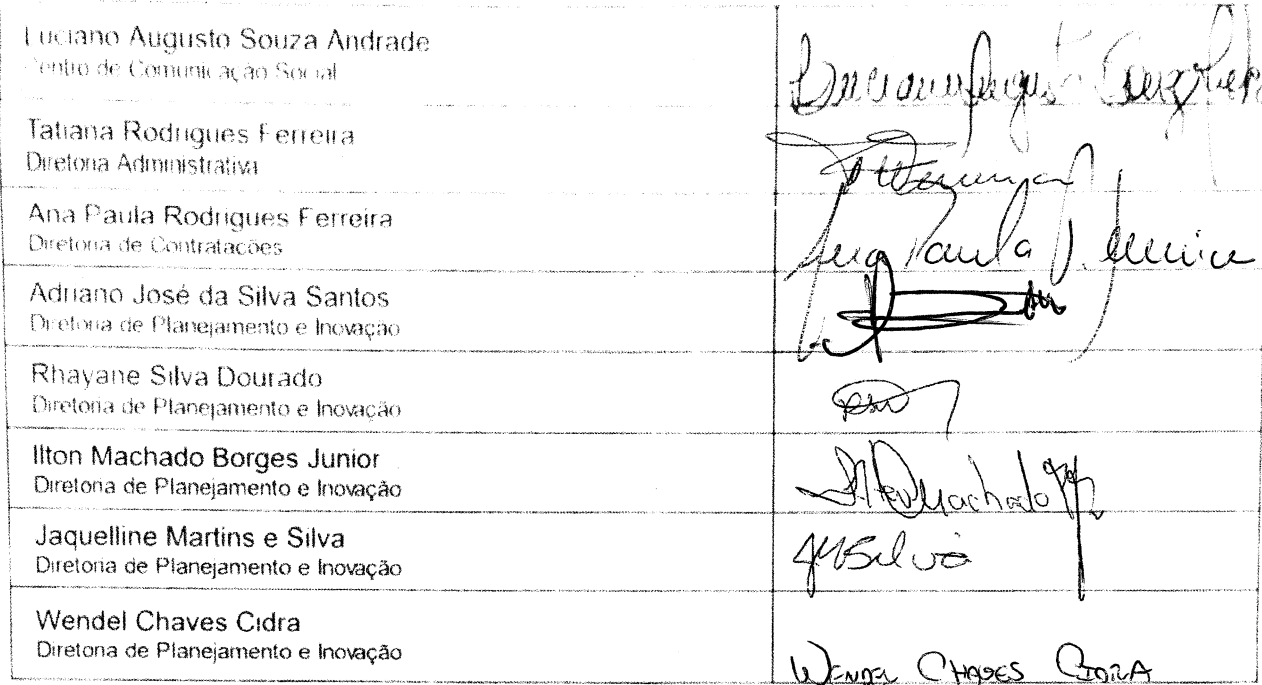 Luciano Augusto Souza Andrade
Centro de Comunicação Social
Tatiana Rodrigues Ferreira
Diretoria Administrativa
Ana Paula Rodrigues Ferreira
Diretoria de Contratações
Ana Paula
Adriano José da Silva Santos
Diretoria de Planejamento e Inovação
Rhayane Silva Dourado
Diretoria de Planejamento e Inovação
Ilton Machado Borges Junior
Diretoria de Planejamento e Inovação
Machado
Jaquelline Martins e Silva
Diretoria de Planejamento e Inovação
JMSilva
Wendel Chaves Cidra
Diretoria de Planejamento e Inovação
WENDEL CHAVES CIDRA